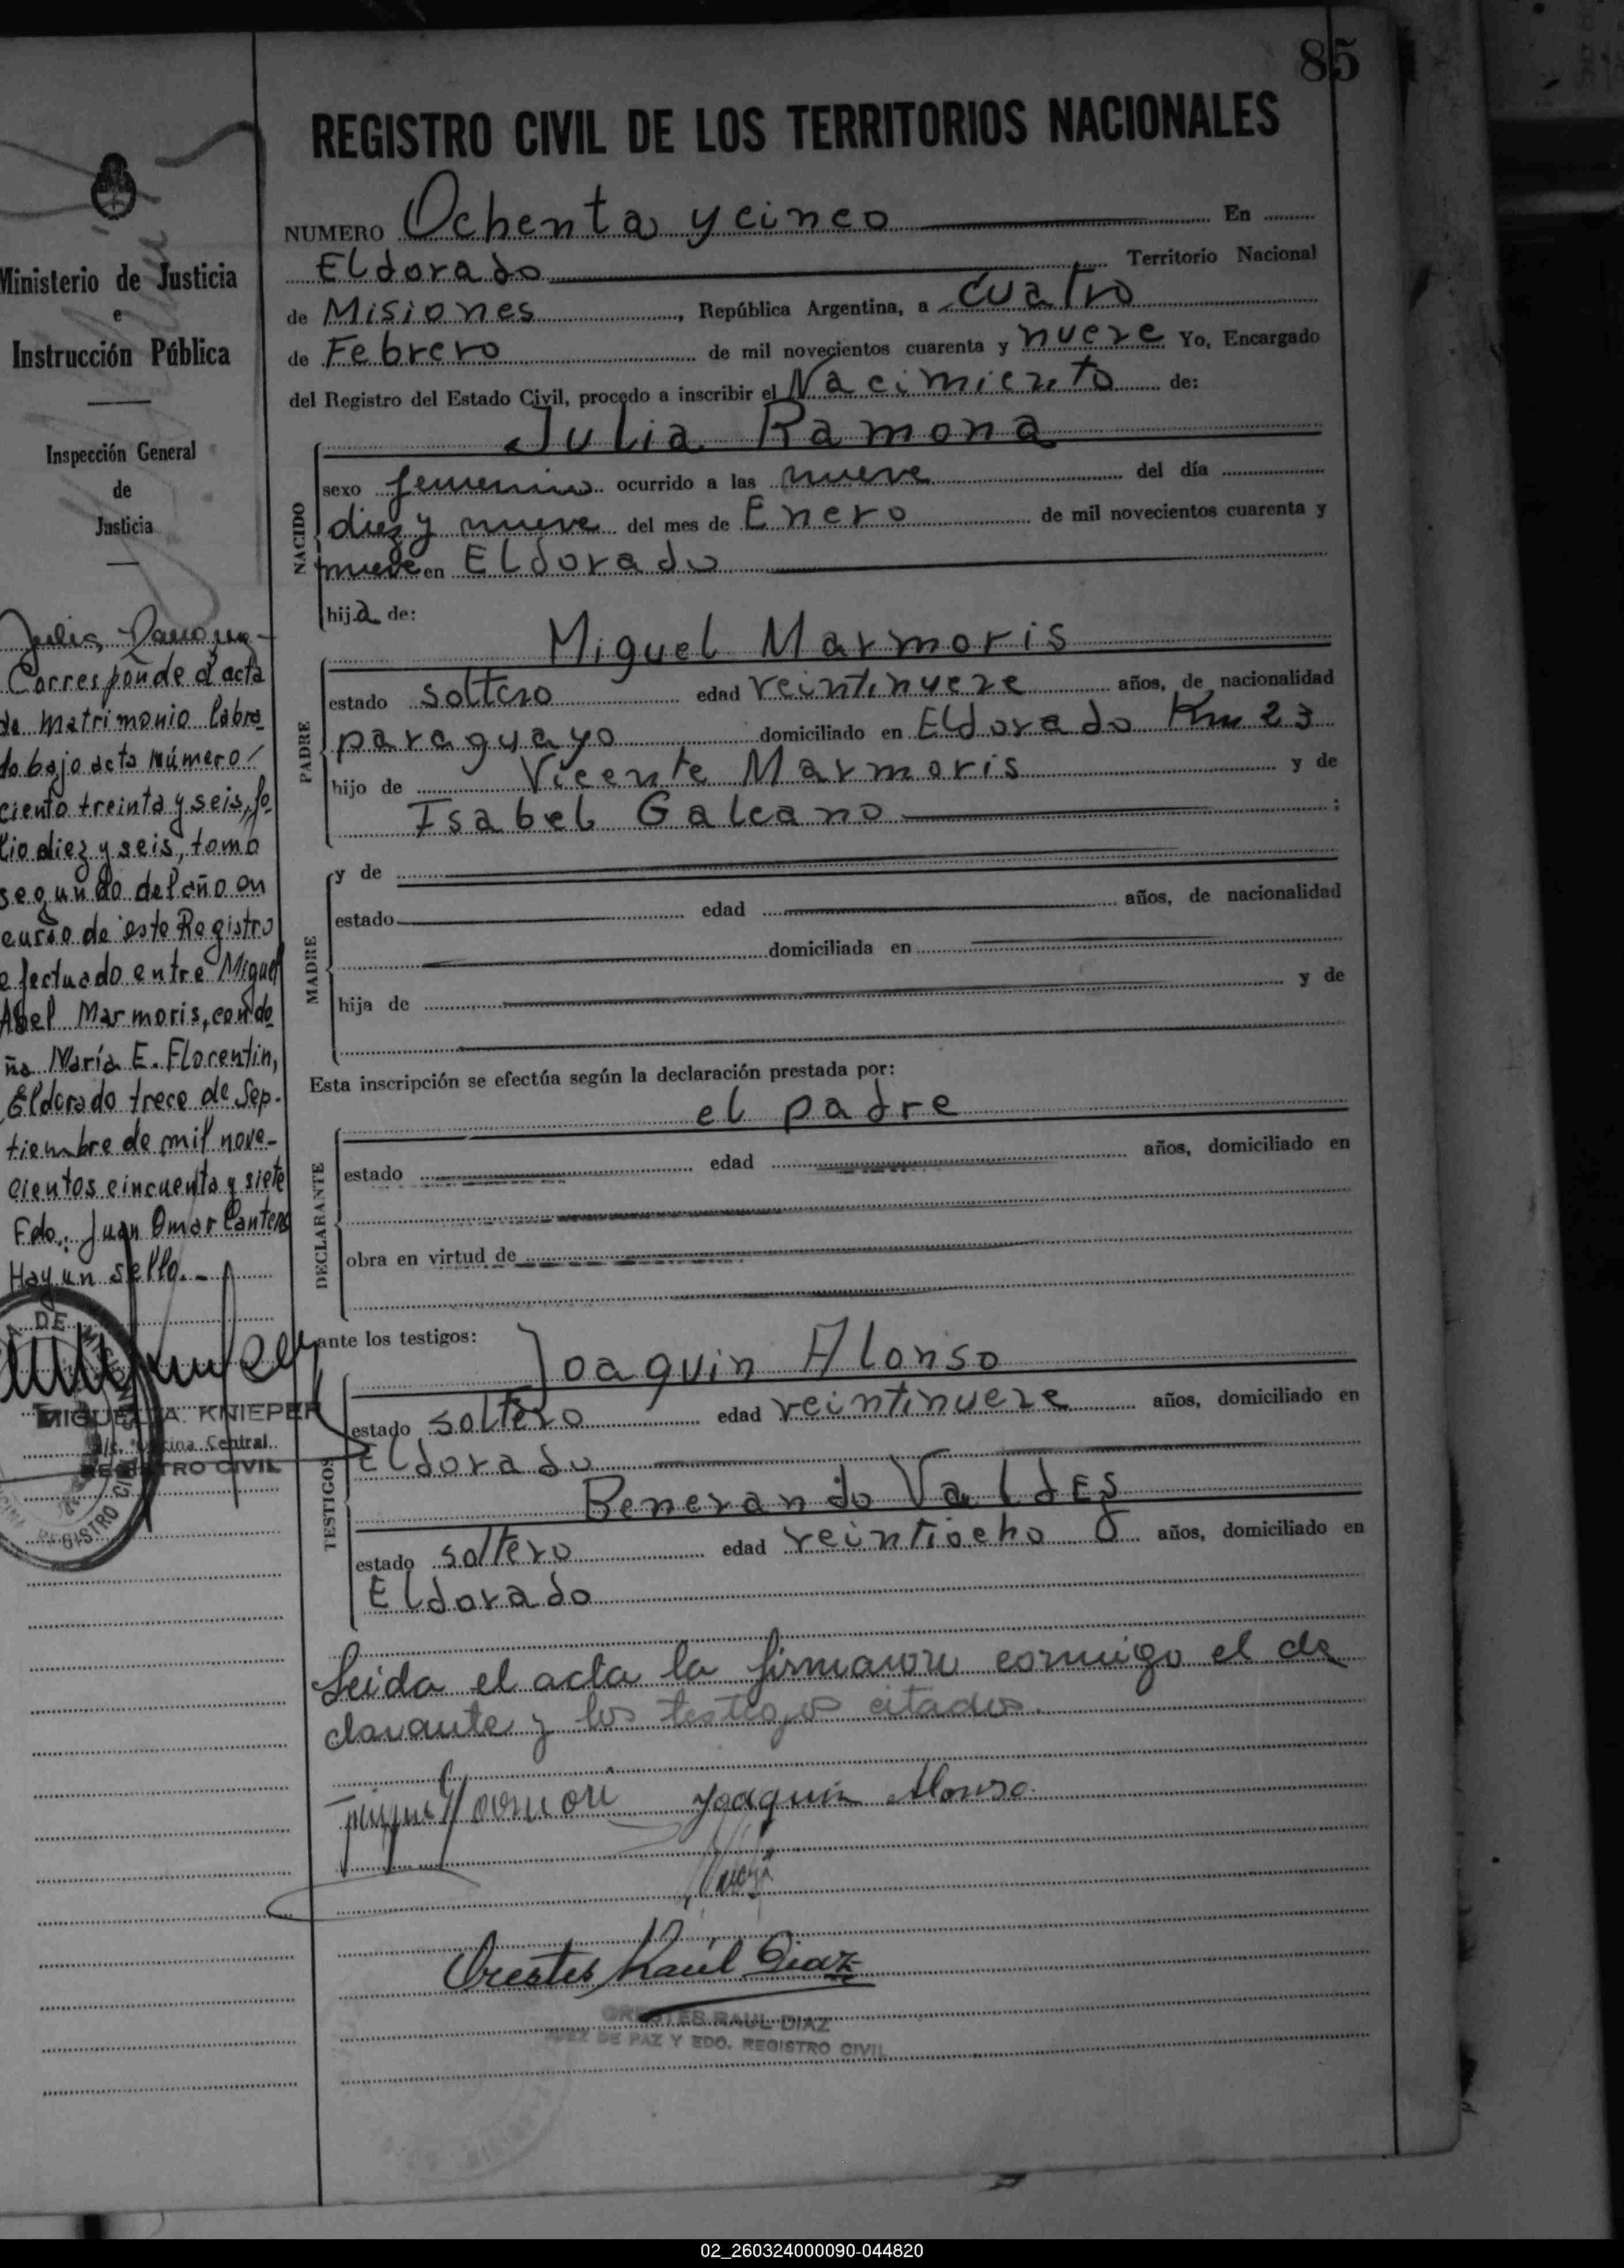 85
REGISTRO CIVIL DE LOS TERRITORIOS NACIONALES
NUMERO Ochenta y cinco En
Eldorado Territorio Nacional
de Misiones, República Argentina, a cuatro
de Febrero de mil novecientos cuarenta y nueve Yo, Encargado
del Registro del Estado Civil, procedo a inscribir el Nacimiento de:
Julia Ramona
NACIDO
sexo femenino ocurrido a las nueve del día
diez y nueve del mes de Enero de mil novecientos cuarenta y
nueve en Eldorado
hija de:
Miguel Marmoris
PADRE
estado soltero edad veintinueve años, de nacionalidad
paraguayo domiciliado en Eldorado Km 23
hijo de Vicente Marmoris y de
Isabel Galeano ;
MADRE
y de
estado edad años, de nacionalidad
domiciliada en
hija de y de
Esta inscripción se efectúa según la declaración prestada por:
el padre
DECLARANTE
estado edad años, domiciliado en
obra en virtud de
ante los testigos:
Joaquin Alonso
TESTIGOS
estado soltero edad veintinueve años, domiciliado en
Eldorado
Benerando Valdes
estado soltero edad veintiocho años, domiciliado en
Eldorado
Leida el acta la firmaron conmigo el de
clarante y los testigos citados.
Joaquin Alonso
Orestes Raúl Diaz
ORESTES RAUL DIAZ
JUEZ DE PAZ Y EDO. REGISTRO CIVIL
Ministerio de Justicia
e
Instrucción Pública
Inspección General
de
Justicia
Julia Ramona
Corresponde al acta
de matrimonio labra-
do bajo acta número
ciento treinta y seis, fo-
lio diez y seis, tomo
segundo del año en
curso de este Registro
efectuado entre Miguel
Abel Marmoris, con do-
ña María E. Florentin,
Eldorado trece de Sep-
tiembre de mil nove-
cientos cincuenta y siete
Fdo.: Juan Omar Canteros
Hay un sello.-
A. KNIEPER
Oficina Central
REGISTRO CIVIL
02_260324000090-044820